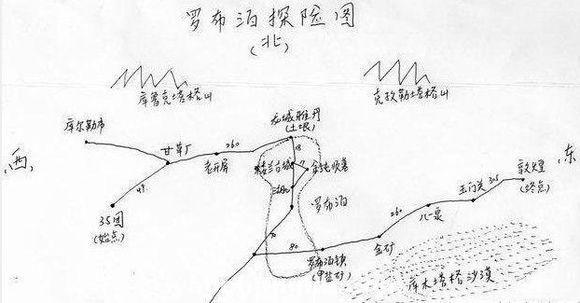 罗布泊探险图
(北)
库鲁克塔格山
克孜勒塔格山
库尔勒市
龙城雅丹
(土垠)
甘草厂
260
老开屏
18
西
楼兰古城
余纯顺墓
东
敦煌
(终点)
305
玉门关
49
罗布泊
八一泉
260
35团
(始点)
70
80
金矿
罗布泊镇
(钾盐矿)
库木塔格沙漠